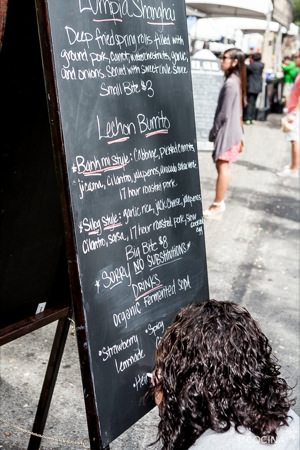 Lumpia Shanghai
Deep fried spring rolls filled with
ground pork, carrot, water chestnuts, garlic,
and onions. Served with sweet chile sauce
Small Bite $3
Lechon Burrito
*Banh mi style: Cabbage, pickled carrots,
jicama, cilantro, jalapenos, avocado salsa verde
17 hour roasted pork.
*Silog style: garlic rice, jack cheese, jalapenos
cilantro, salsa, 17 hour roasted pork,
Big Bite $8
*SORRY NO SUBSTITUTIONS*
DRINKS
Organic Fermented Soda
*Strawberry
Lemonade
*Spicy
COCINA